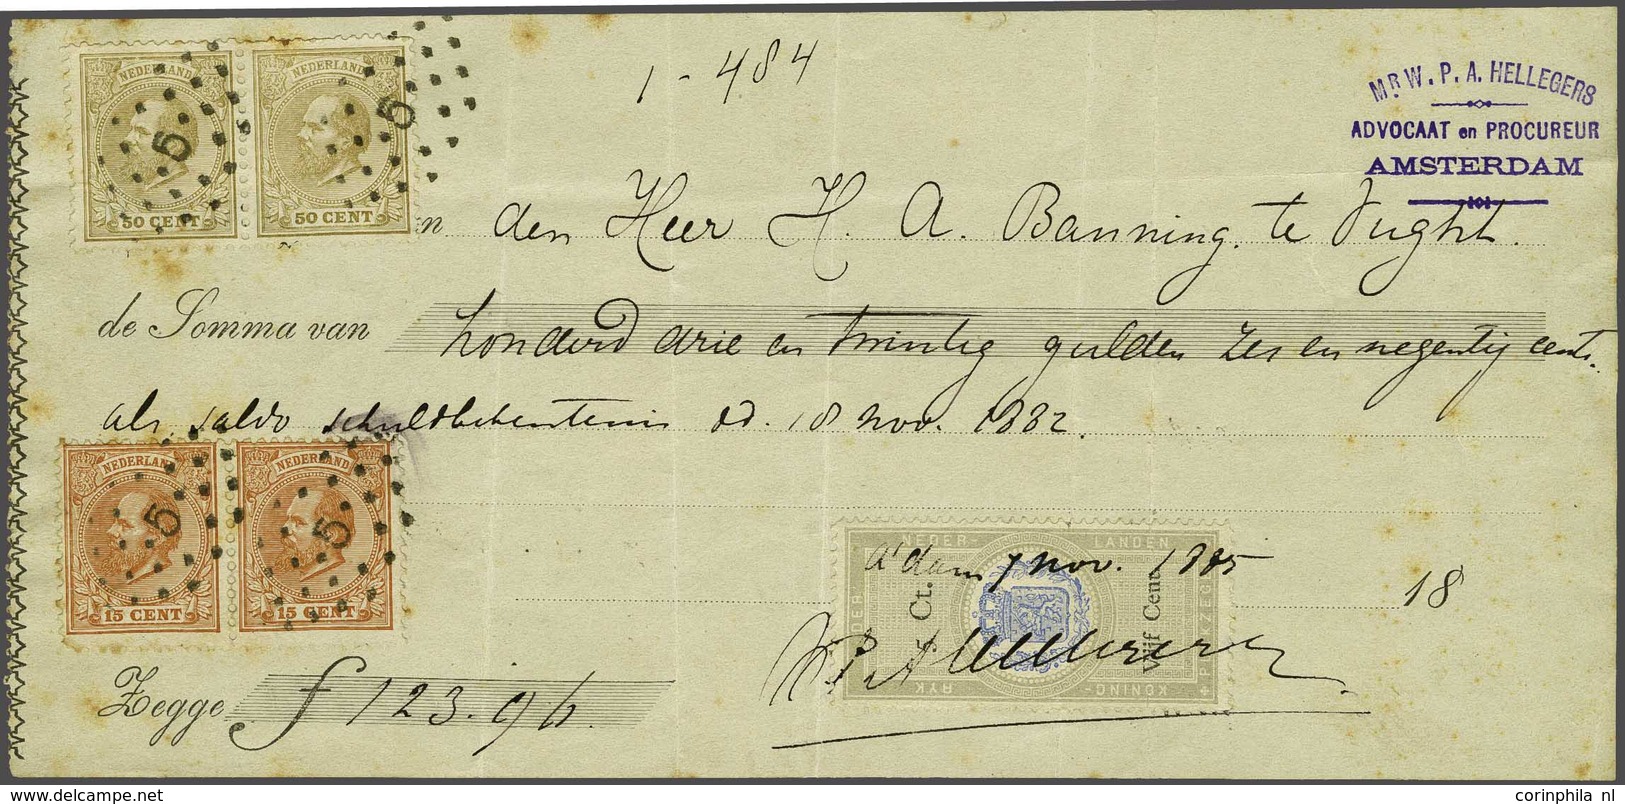 1-484
Mr. W. P. A. HELLEGERS
ADVOCAAT en PROCUREUR
AMSTERDAM
NEDERLAND NEDERLAND
5 5
50 CENT 50 CENT
en den Heer H. A. Banning. te Vught.
de Somma van honderd drie en twintig gulden zes en negentig cents.
als saldo schuldbekentenis dd. 18 nov. 1882.
NEDERLAND NEDERLAND
5 5
15 CENT 15 CENT
NEDER- LANDEN
A'dam 7 nov. 1885
Ct. Vijf Cent
18
RYK KONING-
Zegge f 123.96
corinphila nl